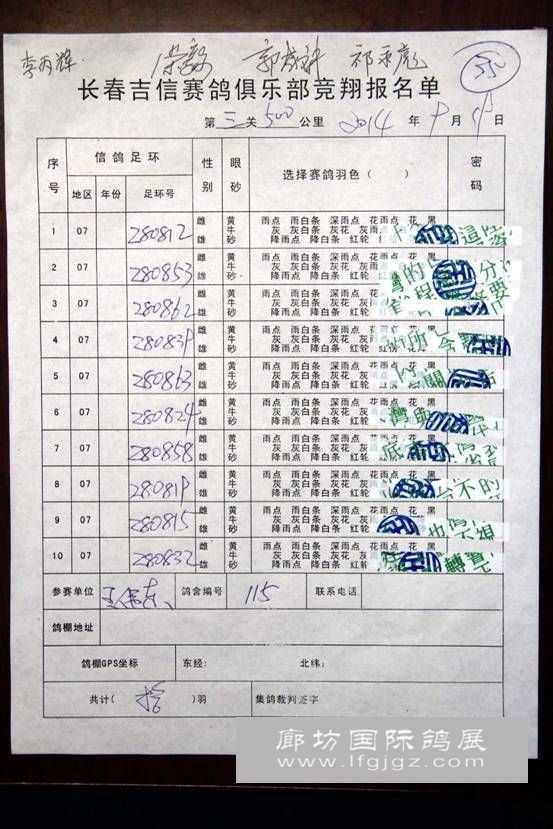 李丙辉 荣毅
长春吉信赛鸽俱乐部竞翔报名单
第 三 关 500 公里 2014 年 9 月 日
序号 信鸽足环 性别 眼砂 选择赛鸽羽色（ ） 密码
地区 年份 足环号
1 07 280812 雌 雄 黄 牛 砂 雨点 雨白条 深雨点 花雨点 花 黑
灰 灰白条 灰花 灰
降雨点 降白条 红轮
2 07 280853 雌 雄 黄 牛 砂 雨点 雨白条 深雨点 花雨点
灰 灰白条 灰花
降雨点 降白条 红轮
3 07 280862 雌 雄 黄 牛 砂 雨点 雨白条 深雨点 花雨点 花 黑
灰 灰白条 灰花 灰
降雨点 降白条 红轮
4 07 280839 雌 雄 黄 牛 砂 雨点 雨白条 深雨点 花雨点 花 黑
灰 灰白条 灰花
降雨点 降白条 红轮
5 07 280863 雌 雄 黄 牛 砂 雨点 雨白条 深雨点 花雨点 花 黑
灰 灰白条 灰花
降雨点 降白条 红轮
6 07 280824 雌 雄 黄 牛 砂 雨点 雨白条 深雨点 花雨点 花 黑
灰 灰白条 灰花
降雨点 降白条 红轮
7 07 280858 雌 雄 黄 牛 砂 雨点 雨白条 深雨点 花雨点 花 黑
灰 灰白条 灰花
降雨点 降白条 红轮
8 07 280819 雌 雄 黄 牛 砂 雨点 雨白条 深雨点 花雨点 花 黑
灰 灰白条 灰花
降雨点 降白条 红轮
9 07 280815 雌 雄 黄 牛 砂 雨点 雨白条 深雨点 花雨点 花 黑
灰 灰白条 灰花 灰
降雨点 降白条 红轮
10 07 280832 雌 雄 黄 牛 砂 雨点 雨白条 深雨点 花雨点 花 黑
灰 灰白条 灰花
降雨点 降白条 红轮
参赛单位 鸽舍编号 115 联系电话
鸽棚地址
鸽棚GPS坐标 东经： 北纬：
共计（ 拾 ）羽 集鸽裁判签字
廊坊国际鸽展
www.lfgjgz.com